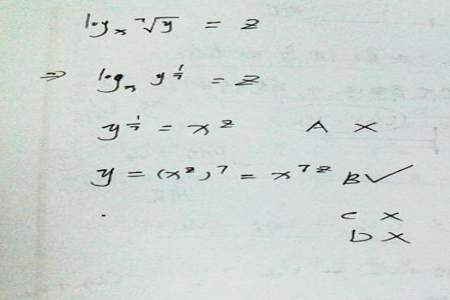 log_x ⁷√y = z
⇒ log_x y^(1/7) = z
y^(1/7) = x^z A ×
y = (x^z)^7 = x^(7z) B ✓
C ×
D ×